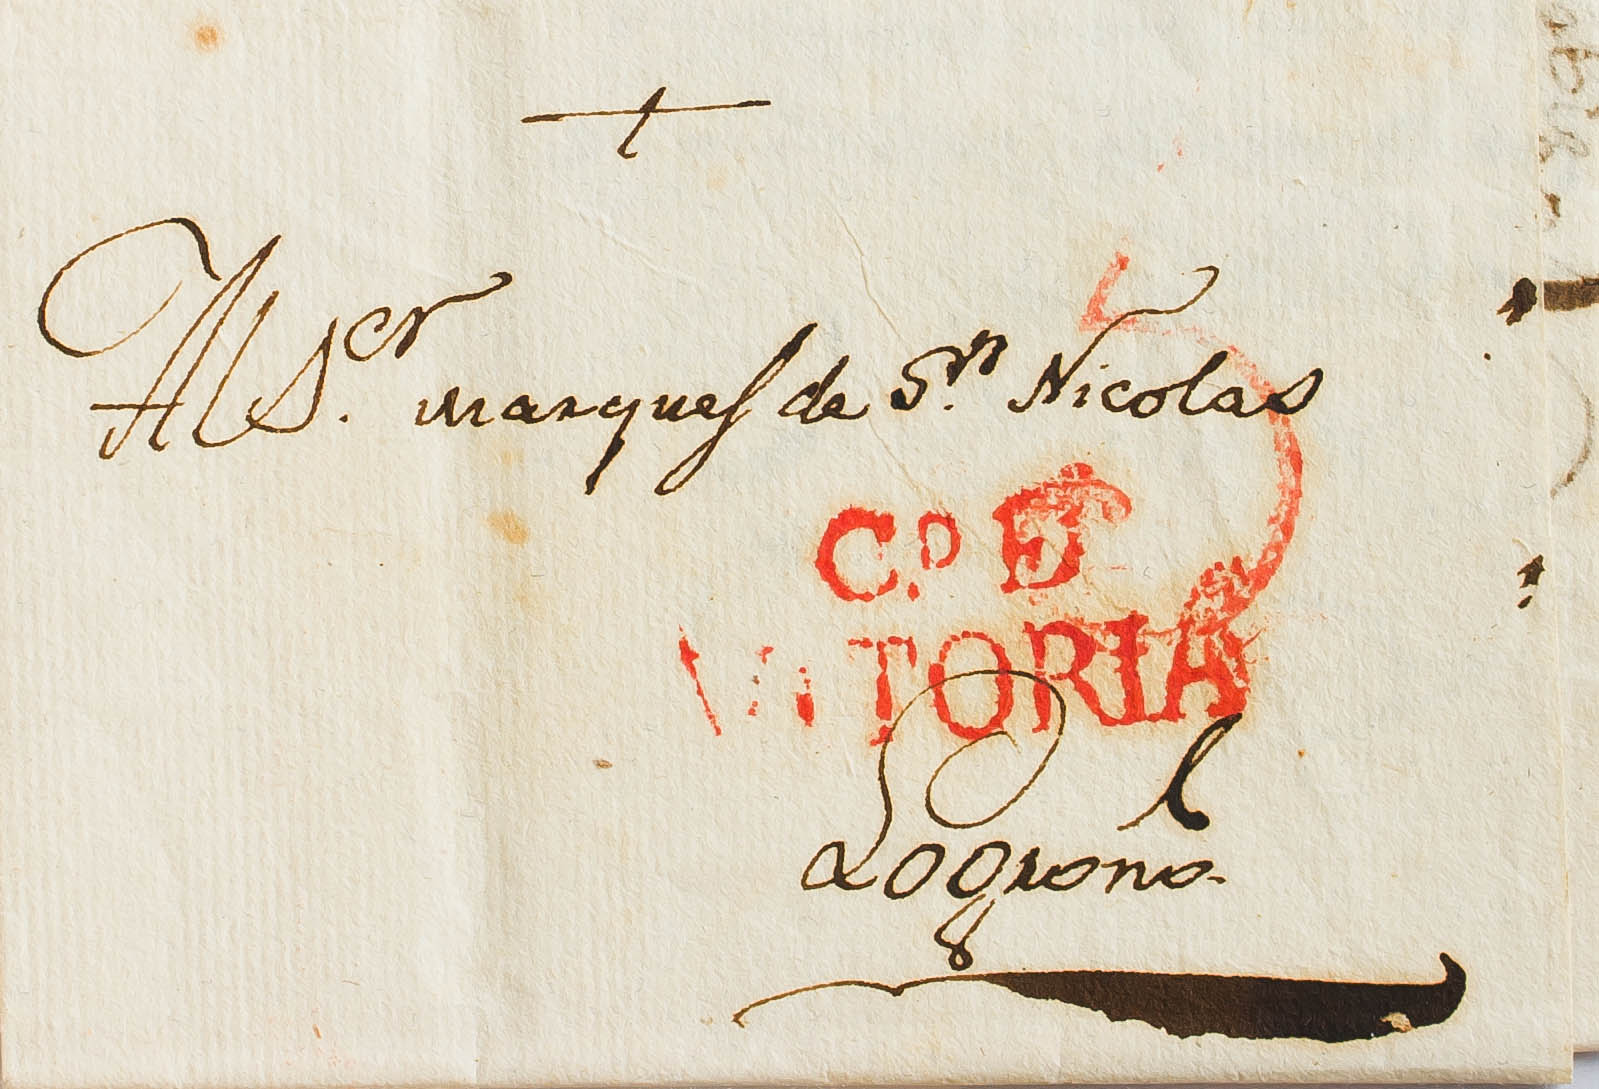 +
Al S.er marques de S.n Nicolas
5
C.D DE
VITORIA
Logrono